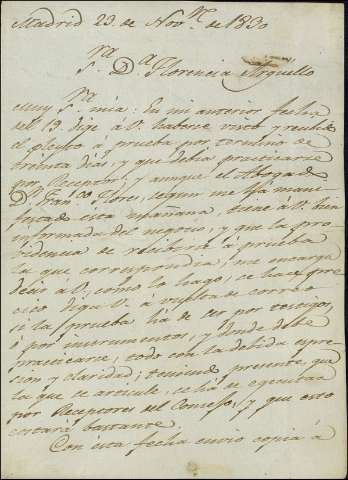 Madrid 23 de Nov.re de 1830
S.ra D.a Florencia Arguello
Muy S.ra mia: En mi anterior fecha
del 19 dige á V. haberse visto y recibido
el pleyto á prueba por termino de
treinta dias, y que debia practicarse
por Receptor; y aunque el Abogado
D. Fran.co Flores, segun me ha mani-
festado esta mañana, tiene á V. bien
informada del negocio, y que la pro-
videncia de recibirse á prueba
la que correspondia, me encarga
decir á V. como lo hago, se hace pre-
ciso diga V. á vuelta de correo
si la prueba há de ser por testigos,
ó por instrumentos, y donde debe
practicarse, todo con la debida expre-
sion y claridad; teniendo presente, que
la que se articule, se há de egecutar
por Receptores del Consejo, y que esto
costará bastante.
Con esta fecha envio copia á